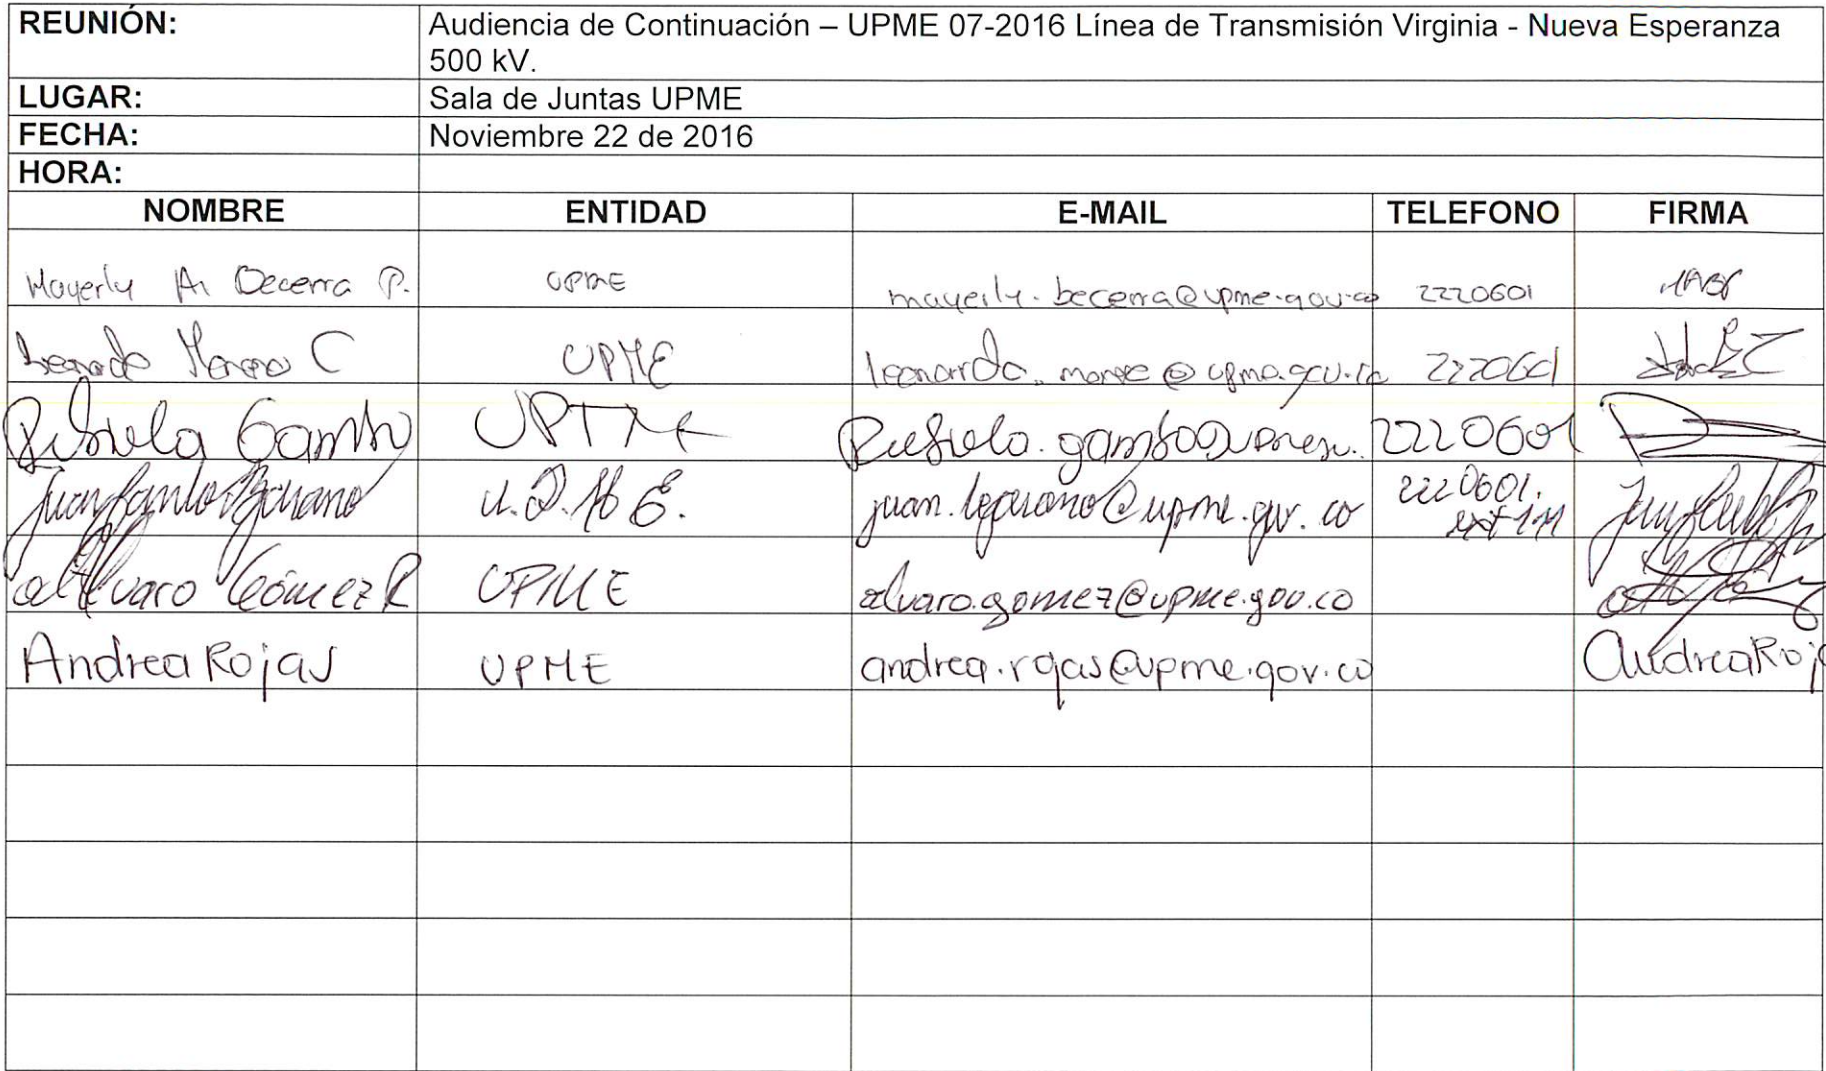 REUNIÓN: Audiencia de Continuación – UPME 07-2016 Línea de Transmisión Virginia - Nueva Esperanza
500 kV.
LUGAR: Sala de Juntas UPME
FECHA: Noviembre 22 de 2016
HORA:
NOMBRE ENTIDAD E-MAIL TELEFONO FIRMA
Mayerly A. Becerra P. UPME mayerly.becerra@upme.gov.co 2220601
Leonardo Moreno C UPME 2220601
Gamboa UPME 2220601
Juan U.P.M.E. 2220601.
ext 111
Alvaro Gómez R UPME alvaro.gomez@upme.gov.co
Andrea Rojas UPME andrea.rojas@upme.gov.co Andrea Roj